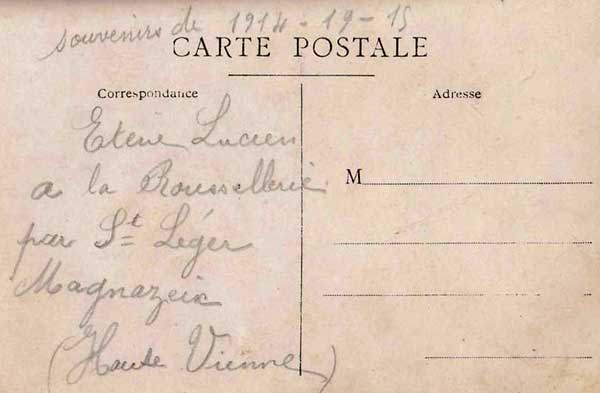 souvenirs de 1914-19-15
CARTE POSTALE
Correspondance
Adresse
Lucien
a la Roussellerie
par St Léger
Magnazeix
(Haute Vienne)
M